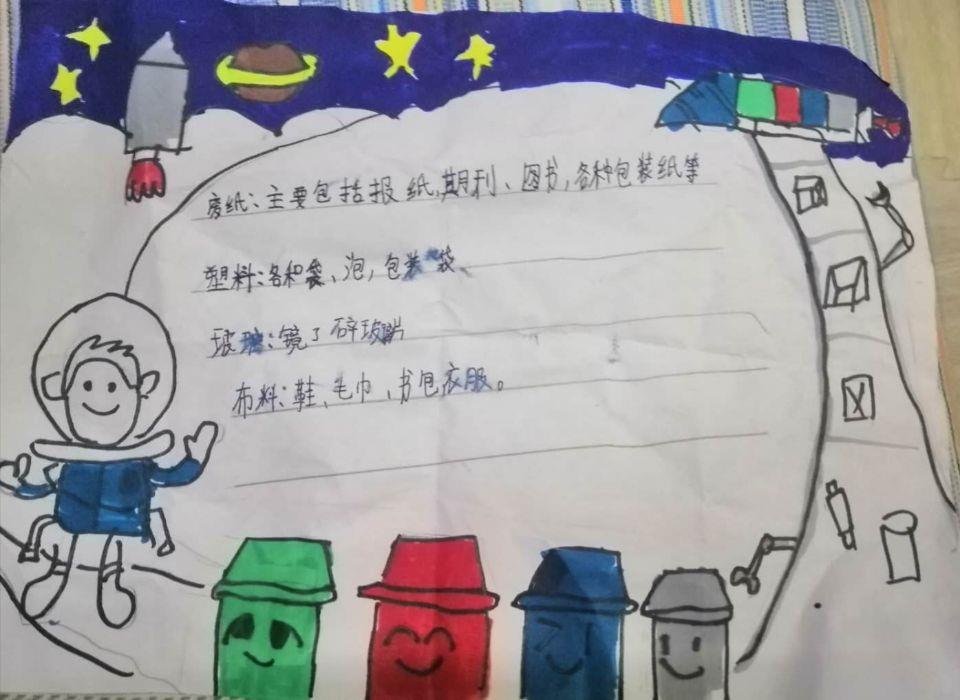 废纸：主要包括报纸，期刊、图书，各种包装纸等
塑料：各种袋、泡，包装袋
玻璃：镜子碎玻片
布料：鞋、毛巾、书包衣服。